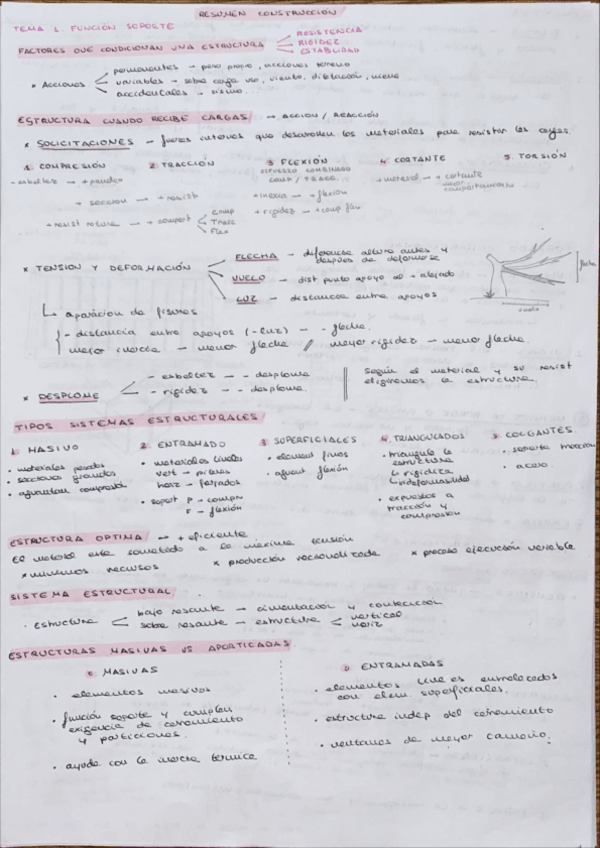 RESUMEN CONSTRUCCIÓN
TEMA 1. FUNCIÓN SOPORTE
FACTORES QUE CONDICIONAN UNA ESTRUCTURA
RESISTENCIA
RIGIDEZ
ESTABILIDAD
* Acciones
permanentes → peso propio, acciones terreno
variables → sobre carga uso, viento, dilatación, nieve
accidentales → sismo.
ESTRUCTURA CUANDO RECIBE CARGAS → ACCION / REACCIÓN
* SOLICITACIONES → fuerzas internas que desarrollan los materiales para resistir las cargas.
1. COMPRESIÓN
- esbeltez → + pandeo
2. TRACCIÓN
→ + sección → + resist
→ + resist rotura → + comport
comp
Tracc
Flex
3. FLEXIÓN
ESFUERZO COMBINADO
COMP / TRACC.
+ inercia → + flexión
+ rigidez → + comp flex
4. CORTANTE
+ material → + cortante
mejor
comportamiento
5. TORSIÓN
* TENSION Y DEFORMACIÓN
FLECHA → diferencia altura antes y
después de deformarse
VUELO → dist punto apoyo al + alejado
LUZ → distancia entre apoyos
flecha
vuelo
↳ aparición de fisuras
- distancia entre apoyos (- luz) → - flecha.
mejor inercia → menor flecha // mayor rigidez → menor flecha.
* DESPLOME
- esbeltez → - desplome
- rigidez → - desplome.
Según el material y su resist
eligiremos la estructura.
TIPOS SISTEMAS ESTRUCTURALES
1. MASIVO
• materiales pesados
• secciones grandes
• aguantan compresión
2. ENTRAMADO
• materiales lineales
vert → pilares
horiz → forjados
• soport P → compr
F → flexión
3. SUPERFICIALES
• element finos
• aguant flexión
4. TRIANGULADOS
• triangula la
estructura
↳ rigidiza
↳ indeformabilidad
• expuestos a
tracción y
compresión
5. COLGANTES.
• soporta tracción
• acero.
ESTRUCTURA OPTIMA → + eficiente
El material este sometido a la máxima tensión
* mínimos recursos
* producción racionalizada
* proceso ejecución variable
SISTEMA ESTRUCTURAL
• Estructura
bajo rasante → cimentación y contención
sobre rasante → estructura
vertical
horiz
ESTRUCTURAS MASIVAS VS APORTICADAS.
MASIVAS
• elementos masivos
• función soporte y cumplen
exigencia de cerramiento
y particiones.
• ayuda con la inercia térmica
ENTRAMADAS
• elementos lineales entrelazados
con elem. superficiales.
• estructura indep del cerramiento
• ventanas de mayor tamaño.